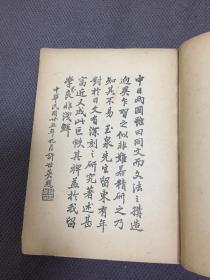 中日兩國雖曰同文而文法之構造
迥異乍習之似非難若精研之乃
知其不易玉泉先生留東有年
對於日文有深刻之研究著述甚
富近又成此巨帙其裨益於我留
學界者非淺鮮
中華民國廿五年九月許世英題